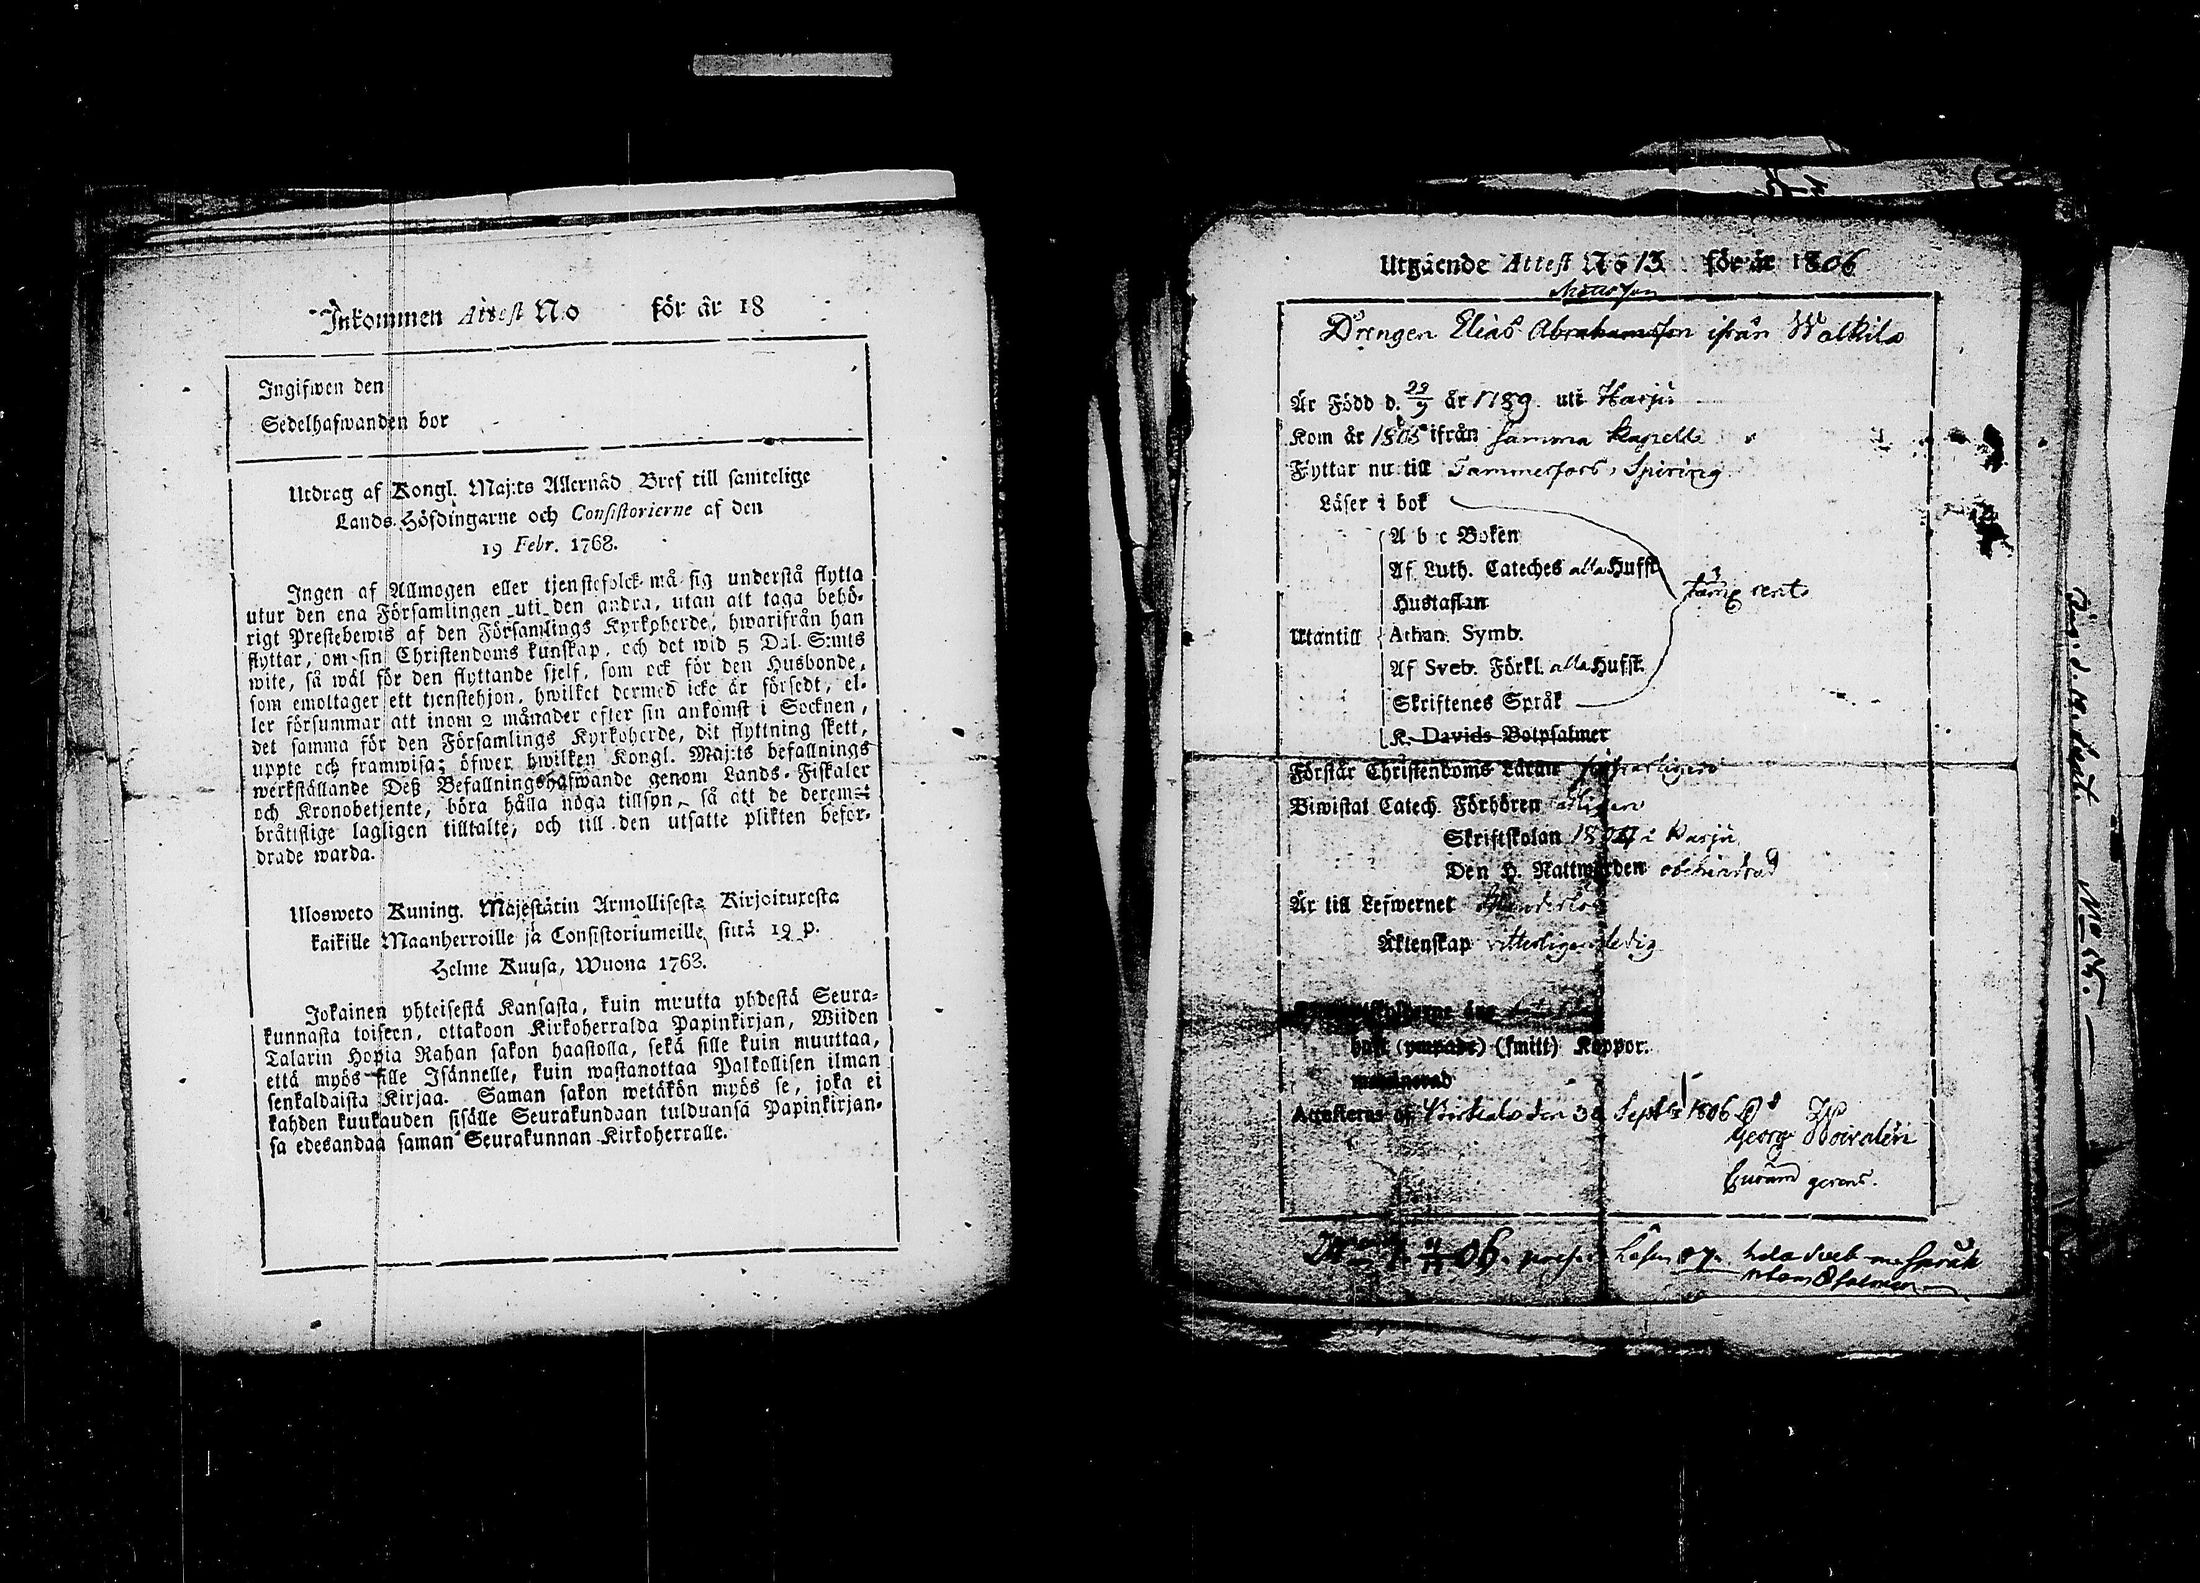 Inkommen Attest No för år 18
Ingifwen den
Sedelhafwanden bor
Utdrag af Kongl. Maj:ts Allernåd. Bref till samtelige
Lands-Höfdingarne och Consistorierne af den
19 Febr. 1768.
Ingen af Allmogen eller tjenstefolck må sig understå flytta
utur den ena Församlingen uti den andra, utan att taga behö-
rigt Prestebewis af den Församlings Kyrkoherde, hwarifrån han
flyttar, om sin Christendoms kunskap, och det wid 5 Dal. S:mts
wite, så wäl för den flyttande sjelf, som ock för den Husbonde,
som emottager ett tjenstehjon, hwilket dermed icke är försedt, el-
ler försummar att inom 2 månader efter sin ankomst i Socknen,
det samma för den Församlings Kyrkoherde, dit flyttning skett,
uppte och framwisa; öfwer hwilken Kongl. Maj:ts befallnings
werkställande Deß Befallningshafwande genom Lands-Fiskaler
och Kronobetjente, böra hålla noga tillsyn, så att de derem=
bråttslige lagligen tilltalte, och till den utsatte plikten befor-
drade warda.
Ulosweto Kuning. Majestätin Armollisesta Kirjoituxesta
kaikille Maanherroille ja Consistoriumeille, siitä 19 p.
Helme Kuusa, Wuona 1768.
Jokainen yhteisestä Kansasta, kuin muutta yhdestä Seura-
kunnasta toiseen, ottakoon Kirkoherralda Papinkirjan, Wiiden
Talarin Hopia Rahan sakon haastolla, sekä sille kuin muuttaa,
että myös sille Isännelle, kuin wastanottaa Palkollisen ilman
senkaldaista Kirjaa. Saman sakon wetäkön myös se, joka ei
kahden kuukauden sisälle Seurakundaan tulduansa Papinkirjan-
sa edesandaa saman Seurakunnan Kirkoherralle.
Utgående Attest No 13 för år 1806
Mattsson
Drengen Elias Abrahamsson ifrån Walkila
Är Född d. 29/9 år 1789 uti Harju
Kom år 1805 ifrån samma Kapell
Flyttar nu till Tammerfors, Spining
Läser i bok
A b c Boken
Af Luth. Cateches alla Hufst.
Hustaflan
Utantill Athan. Symb.
Af Sveb. Förkl. alla Hufst.
Skriftenes Språk
K. Davids Botpsalmer
Förstår Christendoms Läran
Biwistat Catech. Förhören
Skriftskolan 1804 i Harju
Den H. Nattwarden obehindrad
Är till Lefwernet
Äktenskap witterligen ledig
haft (ympade) (smitt) Koppor.
Attesteras af Birkala den 30 Sept. 1806
Georg Woivalin
Curam gerens.
06. Språk
Psalmer
No 55.